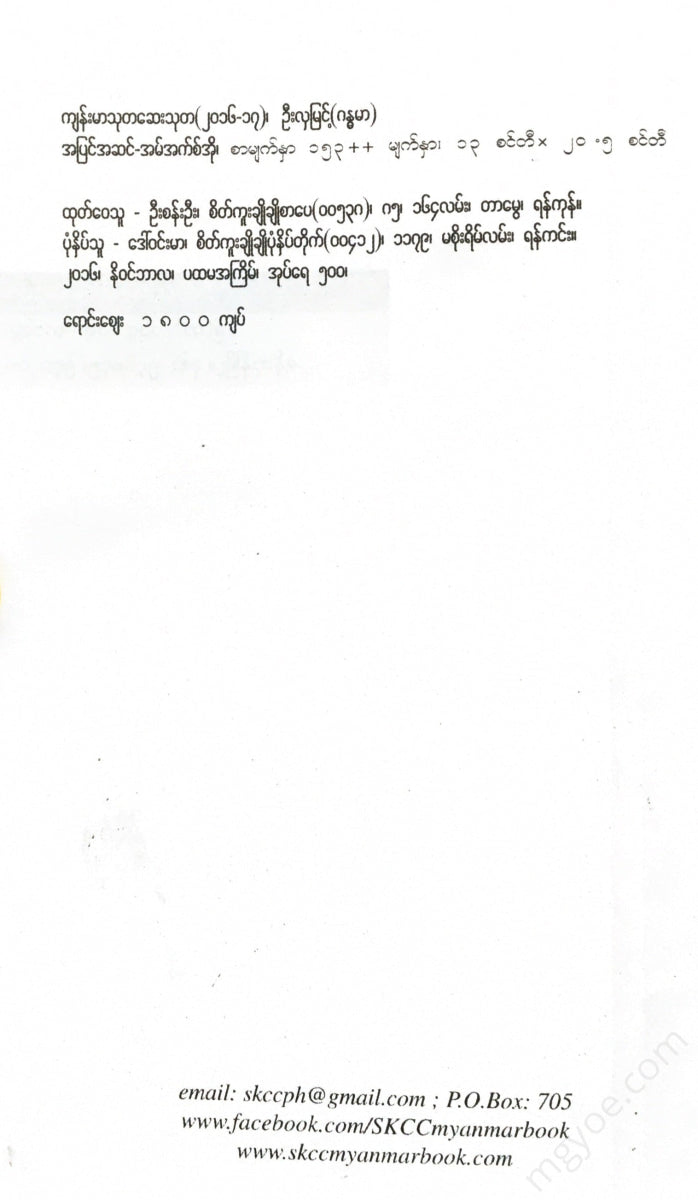 ကျန်းမာသုတဆေးသုတ(၂၀၁၆-၁၇)၊ ဦးလှမြင့်(ဂန္ဓမာ)
အပြင်အဆင်-အမ်အက်စ်အို၊ စာမျက်နှာ ၁၅၃++ မျက်နှာ၊ ၁၃ စင်တီ× ၂၀·၅ စင်တီ
ထုတ်ဝေသူ - ဦးစန်းဦး၊ စိတ်ကူးချိုချိုစာပေ(၀၀၅၃၈)၊ ဂ၅၊ ၁၆၄လမ်း၊ တာမွေ၊ ရန်ကုန်။
ပုံနှိပ်သူ - ဒေါ်ဝင်းမာ၊ စိတ်ကူးချိုချိုပုံနှိပ်တိုက်(၀၀၄၁၂)၊ ၁၁၇၉၊ မစိုးရိမ်လမ်း၊ ရန်ကင်း။
၂၀၁၆၊ နိုဝင်ဘာလ၊ ပထမအကြိမ်၊ အုပ်ရေ ၅၀၀၊
ရောင်းဈေး ၁၈၀၀ ကျပ်
email: skccph@gmail.com ; P.O.Box: 705
www.facebook.com/SKCCmyanmarbook
www.skccmyanmarbook.com
mgyoe.com